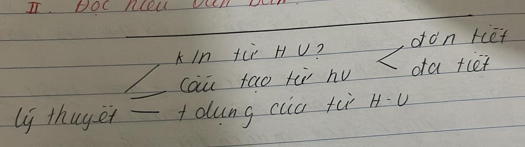 II. Đọc hiểu văn bản
k/n từ HV?
cấu tạo từ hv
đơn tiết
đa tiết
lý thuyết
t dụng của từ H-V